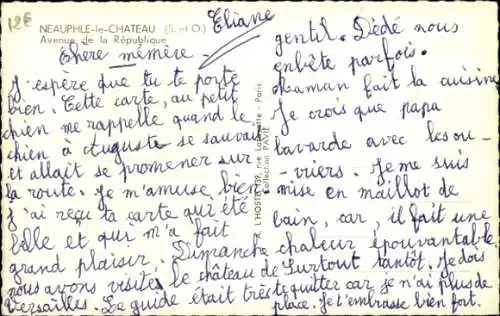 12€
NEAUPHLE-le-CHATEAU (S.-et-O.)
Avenue de la République
Eliane
Chere mémère.
J'espère que tu te porte
bien. Cette carte, au petit
chien me rappelle quand le
chien à Auguste se sauvait
et allait se promener sur
la route. Je m'amuse bien
j'ai reçu ta carte qui été
belle et qui m'a fait
grand plaisir. Dimanche
nous avons visités le château de
Versailles. Le guide était très
gentil. Dédé nous
enbête parfois.
Maman fait la cuisine
Je crois que papa
bavarde avec les ou-
vriers. Je me suis
mise en maillot de
bain, car, il fait une
chaleur épouvantable
Surtout tantôt. Je dois
te quitter car je n'ai plus de
place. Je t'embrasse bien fort.
L'HOSTE, rue La Paris
Collection